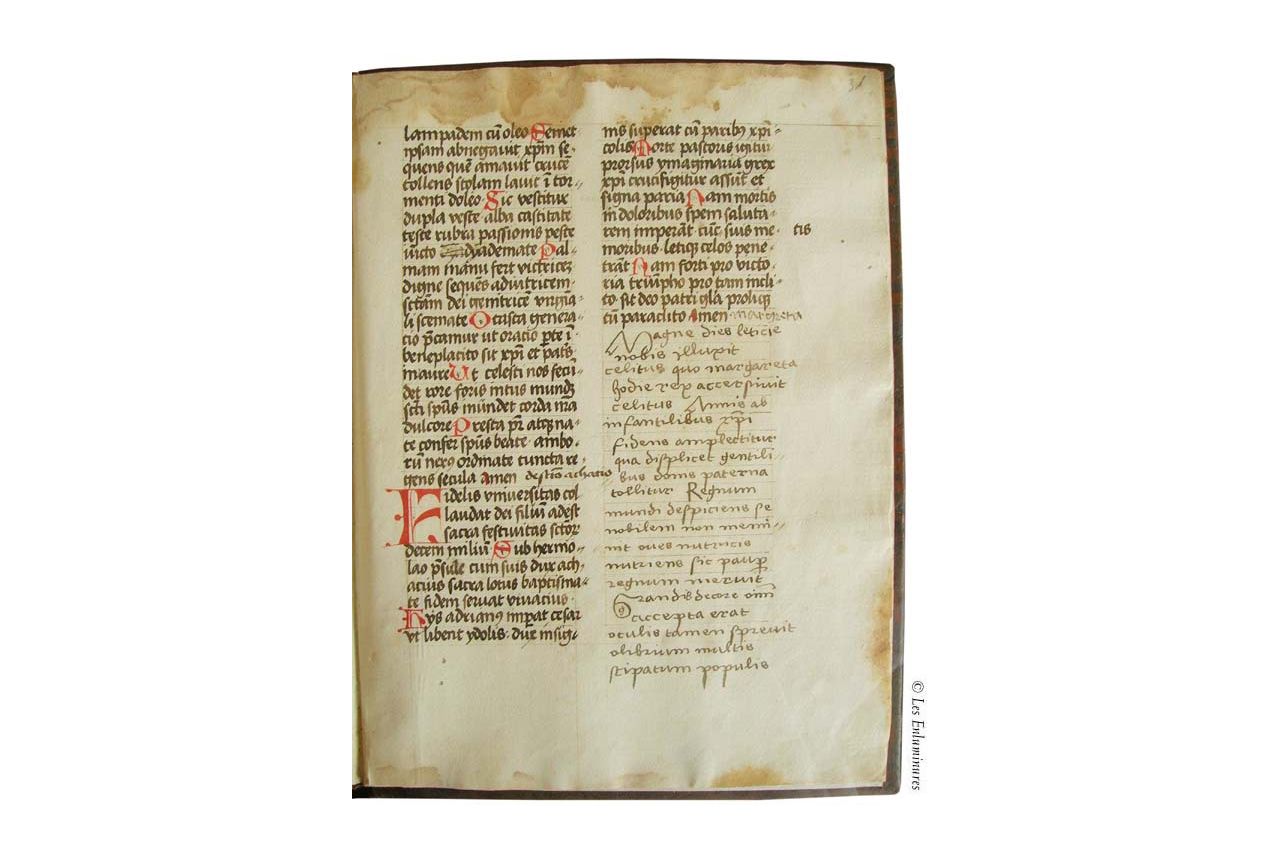 31
lampadem cū oleo Semet
ipsam abnegavit xp̄m se-
quens quē amavit crucē
collens stolam lavit ī tor-
menti doleo Sic vestitur
dupla veste alba castitate
teste rubra passionis peste
victo dyademate Pal-
mam manu fert victricez
digne sequēs adiutricem
sctām dei genitricē virgīa-
li scemate O casta genera-
cio p̄camur ut oracio pte ī
beneplacito sit xp̄i et patris
maure Ut celesti nos fecū
det rore foris intus mundz
scūs spūs mundet corda nr̄a
dulcore Presta pr̄ atqz na-
te confer spūs beate ambo-
rū nexus ordinate cuncta re-
gens secula Amen de sctō achacio
Fidelis universitas col
laudat dei filiū adest
sacra festivitas sctor
decem miliū Sub hermo-
lao p̄sule cum suis dux ach-
acius sacra lotus baptisma-
te fidem servat vivacius
Hys adrianus imp̄at cesar
ut libent ydolis dux insig-
nis superat cū paribz xp̄i-
colis Morte pastoris igitur
prorsus ymaginaria grex
xp̄i crucifigitur assūt et
signa paria Nam mortis
in doloribus spem saluta-
rem imperāt cūc suis me- tis
moribus letiqz celos pene-
trāt Nam forti pro victo-
ria triūpho pro tam incli-
to sit deo patri glā proliqz
cū paraclito Amen margreta
Magne dies leticie
nobis illuxit
celitus quo margareta
hodie rex accersivit
celitus Annis ab
infantilibus xp̄i
fidens amplectitur
qua displicet gentili-
bus doms paterna
tollitur Regnum
mundi despiciens se
nobilem non memī-
nit oves nutricis
nutriens sic paup
regnum meruit
Grandis decore om̄
accepta erat
oculis tamen sprevit
olibrium multis
stipatum populis
© Les Enluminures